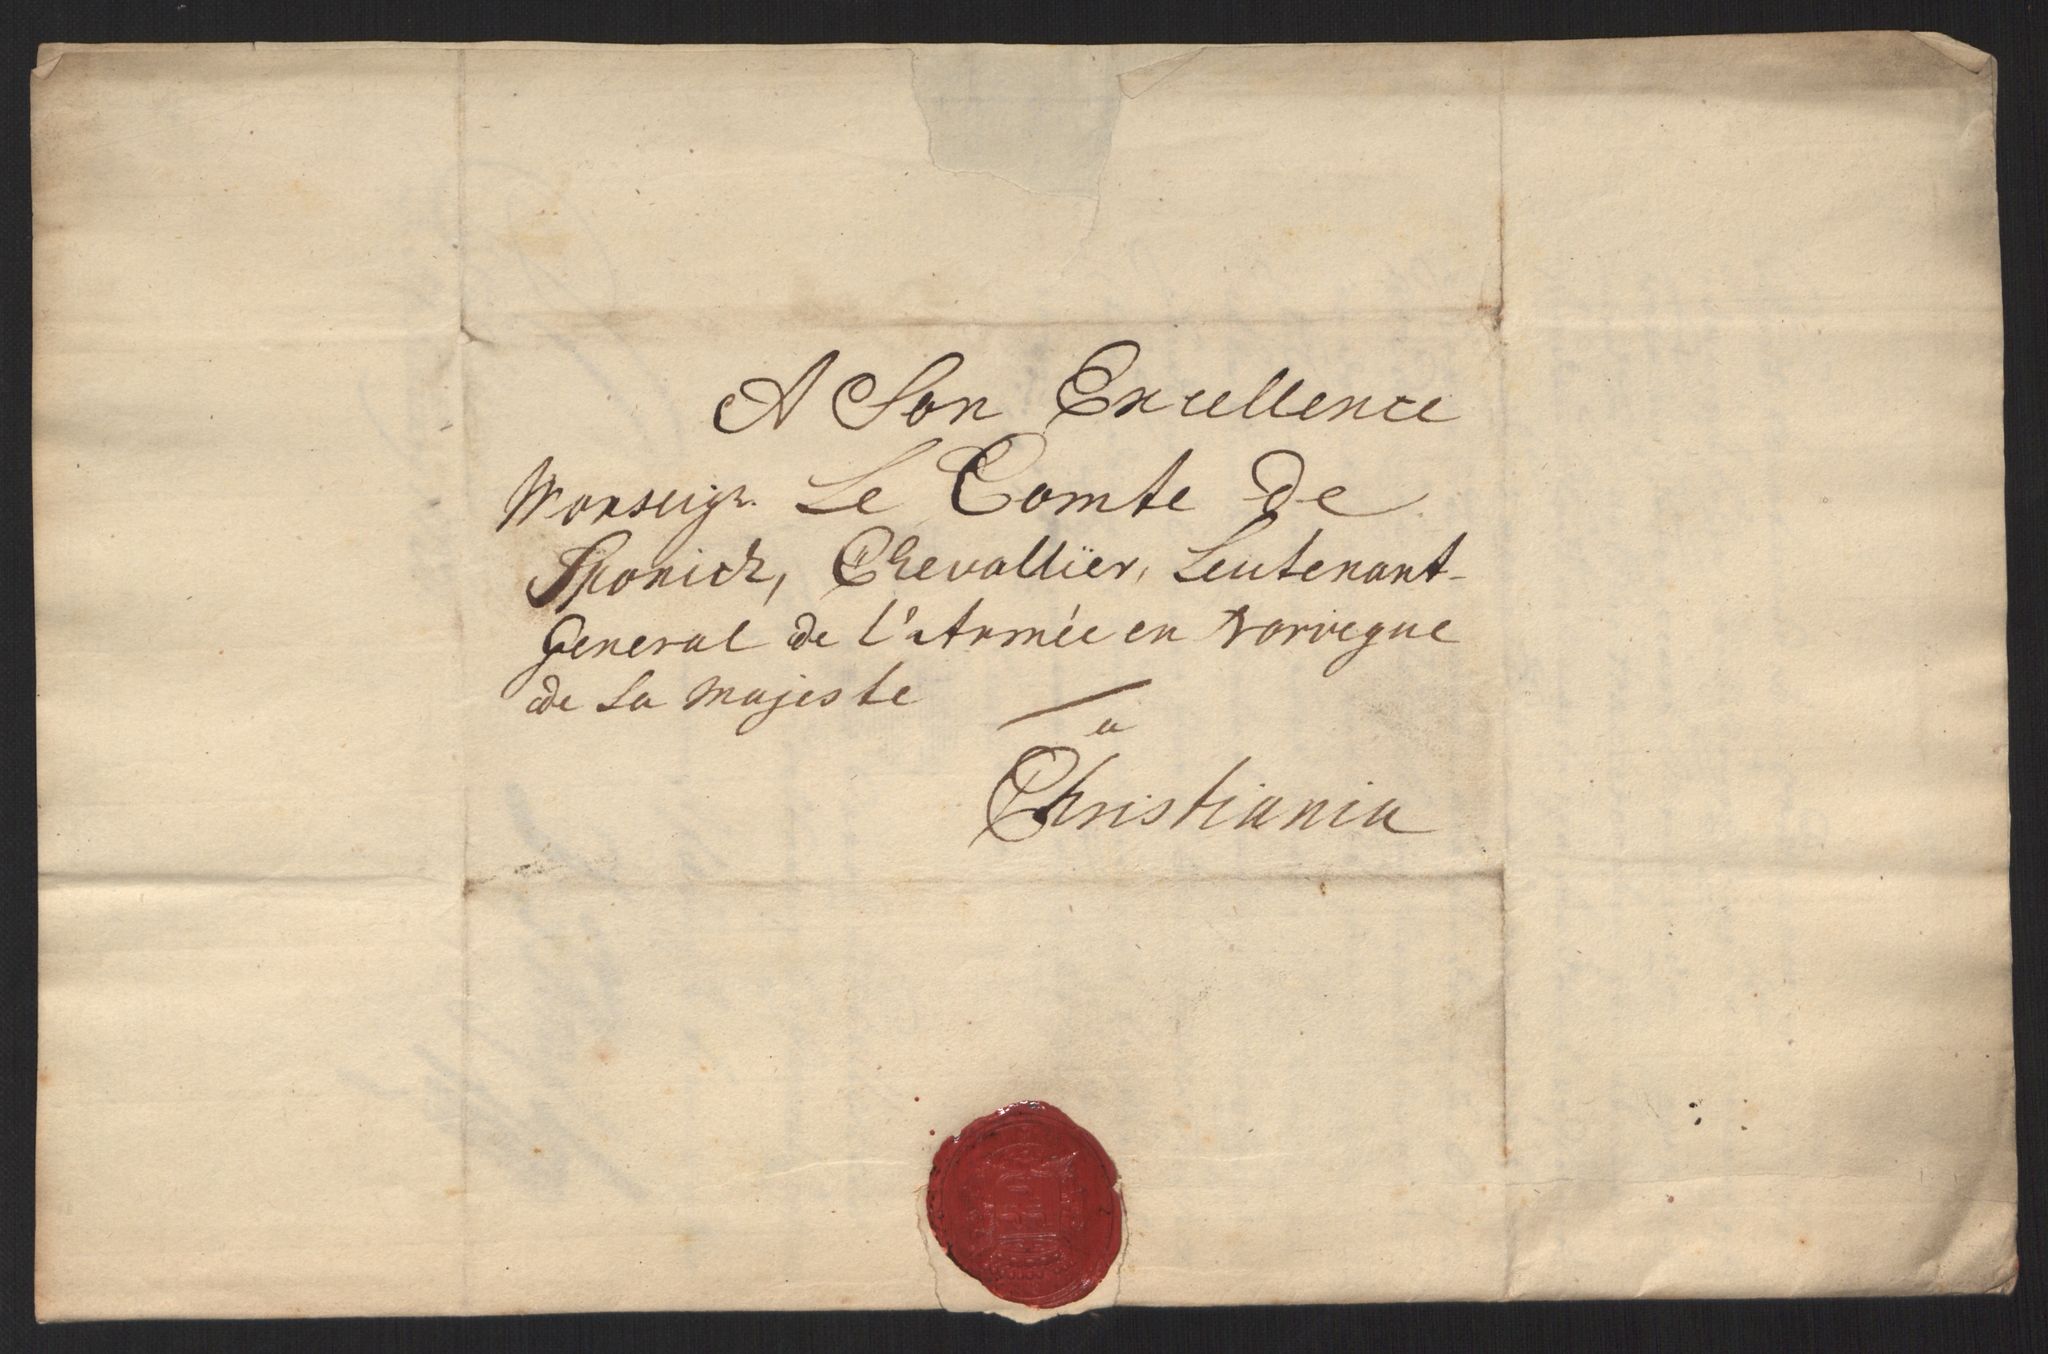 A Son Excellence
Monseigr. Le Comte de
Sponick, Chevallïer, Leutenant-
General de l'Armée en Norvegue
de Sa Majeste
a
Christiania